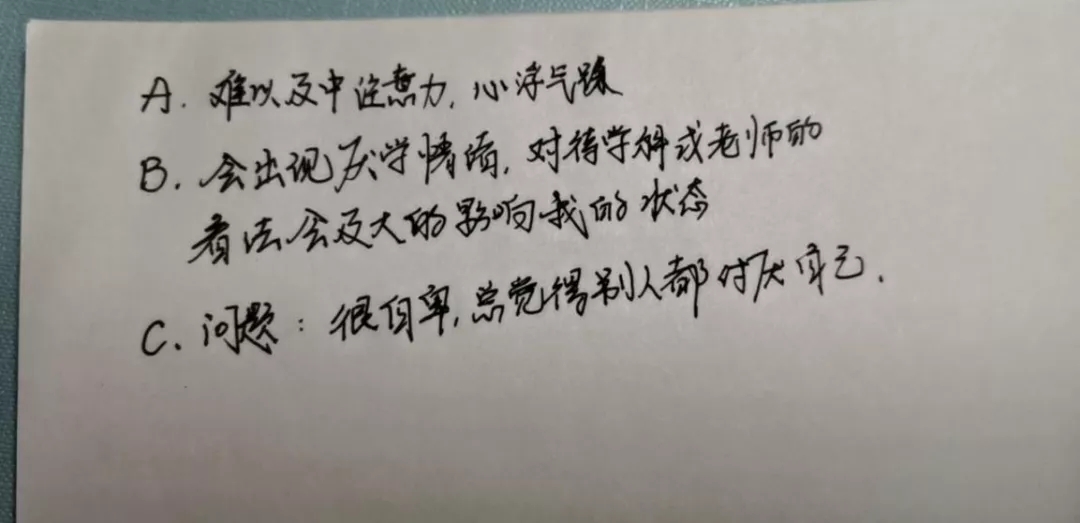 A. 难以及中注意力, 心浮气躁
B. 会出现厌学情绪, 对待学科或老师的
看法会及大的影响我的状态
C. 问题: 很自卑, 总觉得别人都讨厌自己.